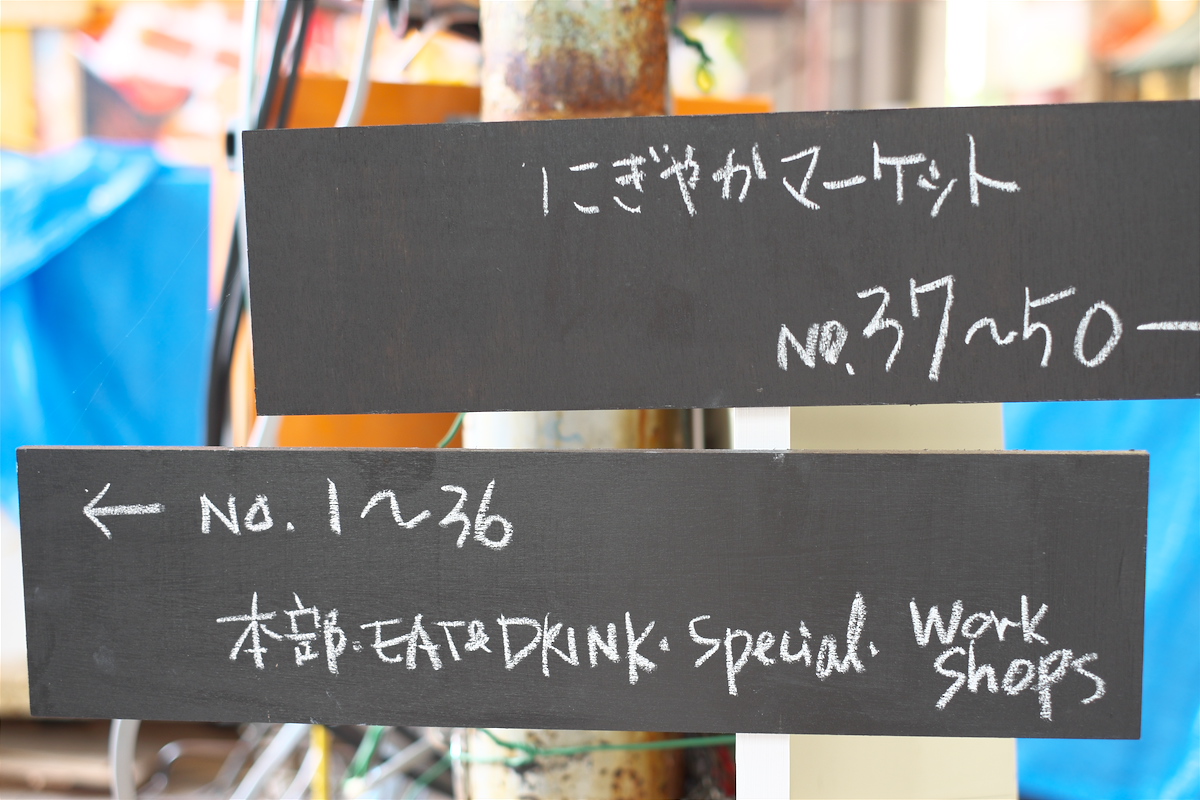 にぎやかマーケット
NO.37〜50 —
← No. 1〜36
本部・EAT&DRINK・Special・Work Shops